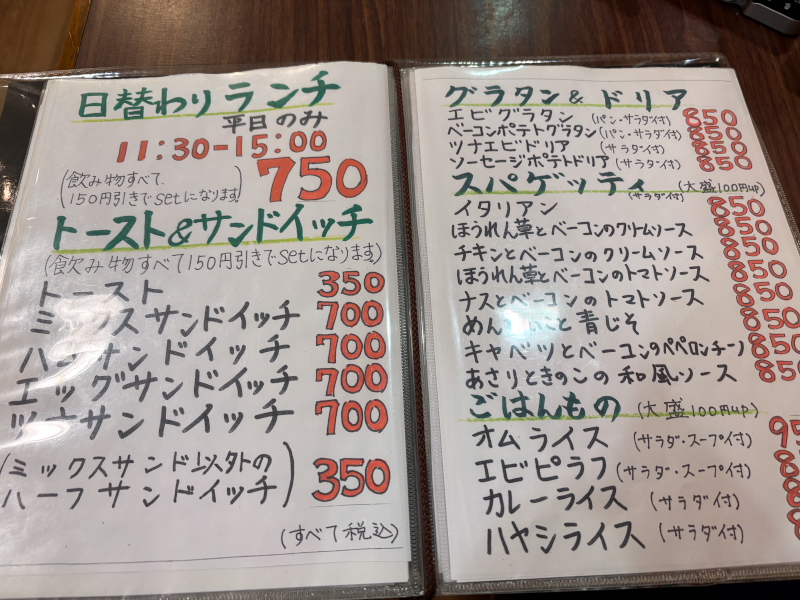 日替わりランチ
平日のみ
11:30-15:00
(飲み物すべて、
150円引きでsetになります)
750
トースト&サンドイッチ
(飲み物すべて150円引きでsetになります)
トースト 350
ミックスサンドイッチ 700
ハムサンドイッチ 700
エッグサンドイッチ 700
ツナサンドイッチ 700
(ミックスサンド以外の
ハーフサンドイッチ) 350
(すべて税込)
グラタン&ドリア
エビグラタン (パン・サラダ付) 850
ベーコンポテトグラタン (パン・サラダ付) 850
ツナエビドリア (サラダ付) 850
ソーセージポテトドリア (サラダ付) 850
スパゲッティ (サラダ付) (大盛100円up)
イタリアン 850
ほうれん草とベーコンのクリームソース 850
チキンとベーコンのクリームソース 850
ほうれん草とベーコンのトマトソース 850
ナスとベーコンのトマトソース 850
めんたいこと青じそ 850
キャベツとベーコンのペペロンチーノ 850
あさりときのこの和風ソース 85
ごはんもの (大盛100円up)
オムライス (サラダ・スープ付) 95
エビピラフ (サラダ・スープ付)
カレーライス (サラダ付)
ハヤシライス (サラダ付)